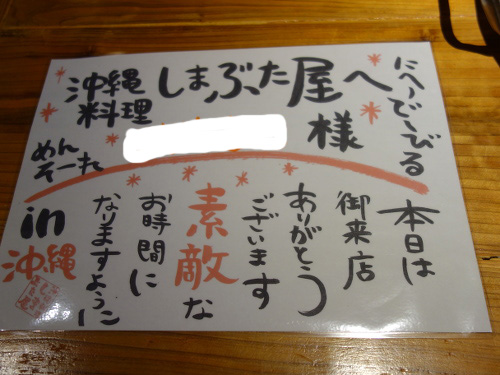 沖縄料理 しまぶた屋へ
めんそーれ
様
にへーでーびる
本日は
御来店
ありがとう
ございます
素敵な
お時間に
なりますように
in
沖縄